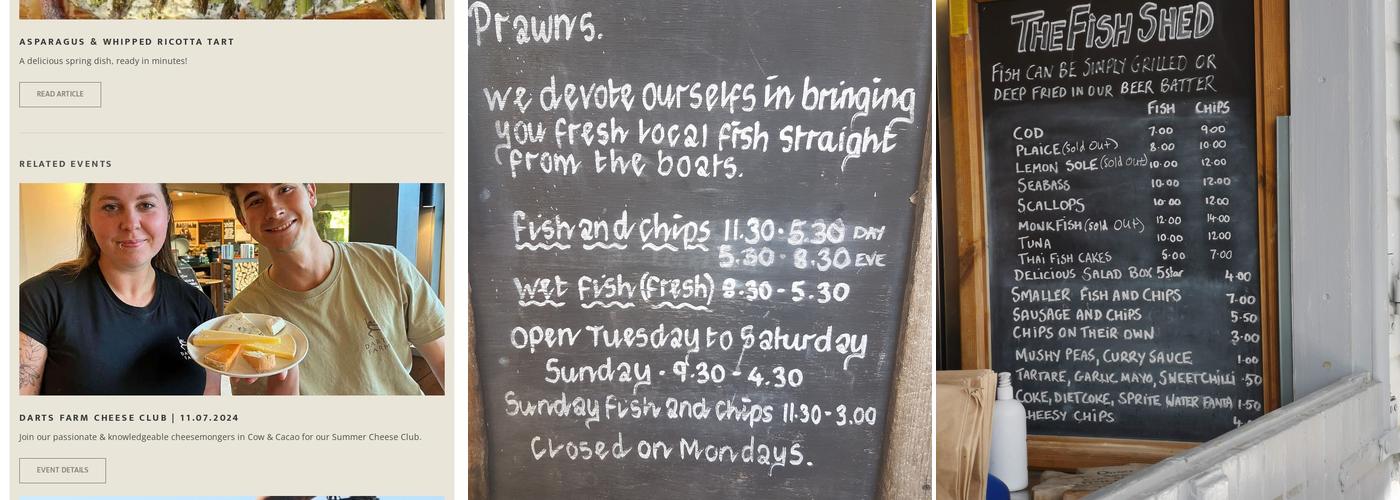 ASPARAGUS & WHIPPED RICOTTA TART
A delicious spring dish, ready in minutes!
READ ARTICLE
RELATED EVENTS
DARTS FARM CHEESE CLUB | 11.07.2024
Join our passionate & knowledgeable cheesemongers in Cow & Cacao for our Summer Cheese Club.
EVENT DETAILS
Prawns.
we devote ourselfs in bringing
you fresh local fish straight
from the boats.
fish and chips 11.30 - 5.30 DAY
5.30 - 8.30 EVE
wet fish (fresh) 8.30 - 5.30
Open Tuesday to Saturday
Sunday - 9.30 - 4.30
Sunday fish and chips 11.30 - 3.00
Closed on Mondays.
THE FISH SHED
FISH CAN BE SIMPLY GRILLED OR
DEEP FRIED IN OUR BEER BATTER
FISH CHIPS
COD 7.00 9.00
PLAICE (Sold Out) 8.00 10.00
LEMON SOLE (Sold Out) 10.00 12.00
SEABASS 10.00 12.00
SCALLOPS 10.00 12.00
MONKFISH (Sold Out) 12.00 14.00
TUNA 10.00 12.00
THAI FISH CAKES 5.00 7.00
DELICIOUS SALAD BOX 5star 4.00
SMALLER FISH AND CHIPS 7.00
SAUSAGE AND CHIPS 5.50
CHIPS ON THEIR OWN 3.00
MUSHY PEAS, CURRY SAUCE 1.00
TARTARE, GARLIC MAYO, SWEETCHILLI .50
COKE, DIETCOKE, SPRITE WATER FANTA 1.50
CHEESY CHIPS